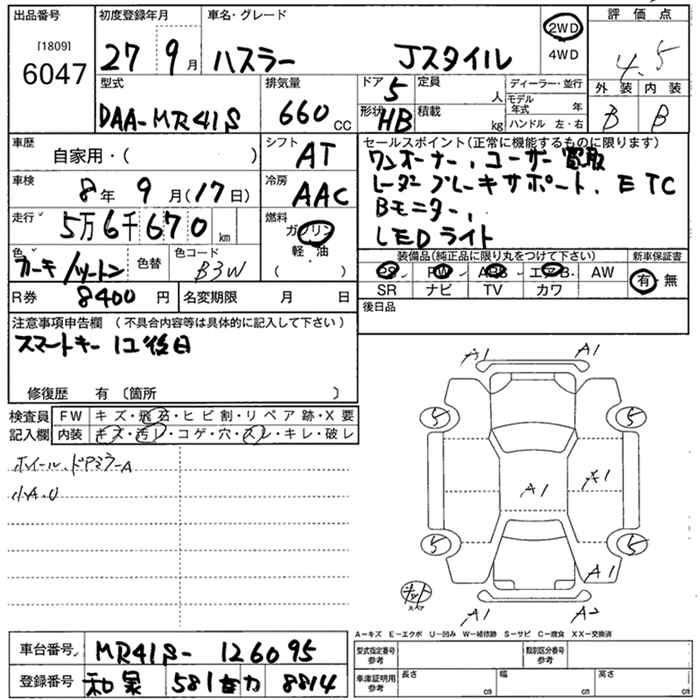 出品番号 初度登録年月 車名・グレード 評価点
[1809]
6047 27 9月 ハスラー Jスタイル 2WD 4WD 4.5
外装 内装
B B
型式 排気量 ドア 5 定員 人 ディーラー・並行
DAA-MR41S 660 CC 形状 HB 積載 kg モデル年式 年
ハンドル 左・右
車歴 自家用・( ) シフト AT
車検 8年 9月(17日) 冷房 AAC
走行 5万6千670km 燃料 ガソリン 軽・油 ( )
色 カーキ/ツートン 色替 色コード B3W
R券 8400円 名変期限 月 日
セールスポイント(正常に機能するものに限ります)
ワンオーナー、ユーザー買取
レーダーブレーキサポート、ETC
Bモニター、
LEDライト
装備品(純正品に限り丸をつけて下さい) 新車保証書
PS PW ABS エアB AW 有・無
SR ナビ TV カワ
後日品
注意事項申告欄 (不具合内容等は具体的に記入して下さい)
スマートキー1コ後日
修復歴 有 〔箇所 〕
検査員記入欄 FW キズ・飛石・ヒビ割・リペア跡・X要
内装 キズ・汚レ・コゲ・穴・スレ・キレ・破レ
ホイール、ドアミラーA
小A.U
A1 A1
5 5
A1 A1
5 5
A1
A1 A2
A-キズ E-エクボ U-凹み W-補修跡 S-サビ C-腐食 XX-交換済
車台番号 MR41S-126095
登録番号 581 8814
型式指定番号 参考 類別区分番号 参考
車庫証明用 参考 長さ cm 幅 cm 高さ cm